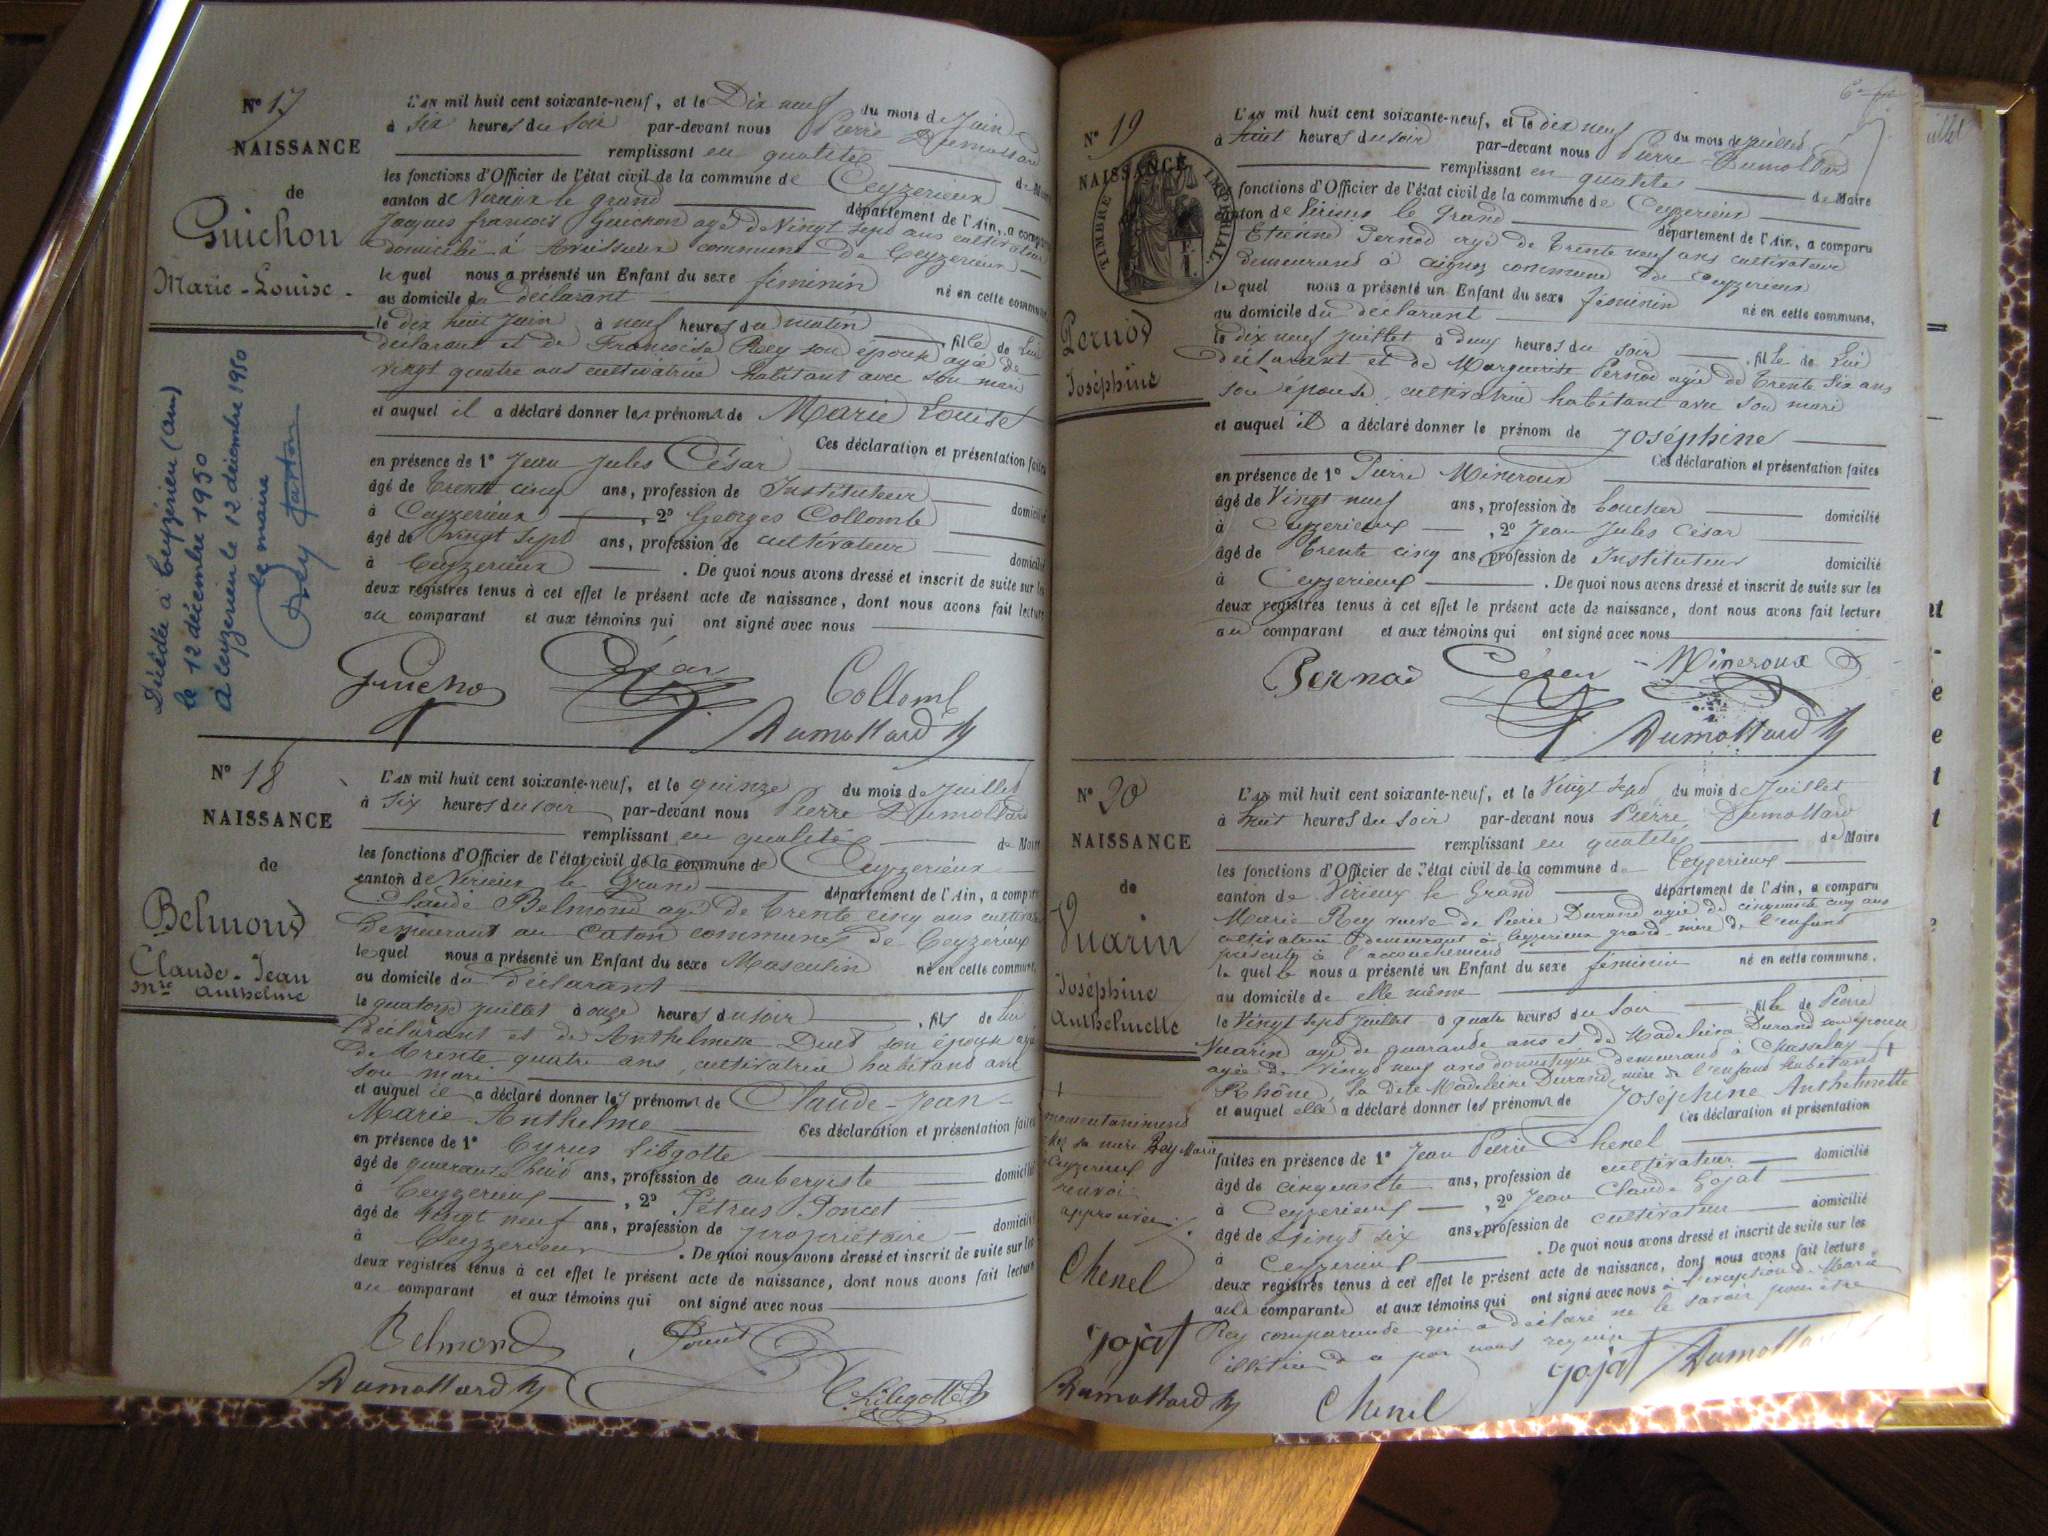 N° 17
NAISSANCE
de
Guichon
Marie-Louise
L'AN mil huit cent soixante-neuf, et le Dix neuf du mois de Juin
à six heures du soir par-devant nous Pierre Dumollard
remplissant en qualité de Maire
les fonctions d'Officier de l'état civil de la commune de Ceyzerieux
canton de Virieux le grand département de l'Ain, a comparu
Jacques francois Guichon agé de Vingt sept ans cultivateur
domicilié à Avrissieux commune de Ceyzerieux
le quel nous a présenté un Enfant du sexe féminin né en cette commune
au domicile du déclarant
le dix huit Juin à neuf heures du matin, fille de Lui
déclarant et de Françoise Rey son épouse agée de
vingt quatre ans cultivatrice habitant avec son mari
et auquel il a déclaré donner les prénoms de Marie Louise
Ces déclaration et présentation faites
en présence de 1° Jean Jules César
âgé de trente cinq ans, profession de Instituteur domicilié
à Ceyzerieux, 2° Georges Collomb
âgé de vingt sept ans, profession de cultivateur domicilié
à Ceyzerieux. De quoi nous avons dressé et inscrit de suite sur les
deux registres tenus à cet effet le présent acte de naissance, dont nous avons fait lecture
au comparant et aux témoins qui ont signé avec nous
Guichon César Collomb
Dumollard
Décédée à Ceyzerieu (ain)
le 12 décembre 1950
à Ceyzerieu le 12 décembre 1950
le maire
N° 18
NAISSANCE
de
Belmond
Claude-Jean
Mie Anthelme
L'AN mil huit cent soixante-neuf, et le quinze du mois de Juillet
à six heures du soir par-devant nous Pierre Dumollard
remplissant en qualité de Maire
les fonctions d'Officier de l'état civil de la commune de Ceyzerieux
canton de Virieux le Grand département de l'Ain, a comparu
Claude Belmond agé de trente cinq ans cultivateur
demeurant au Caton commune de Ceyzerieux
le quel nous a présenté un Enfant du sexe Masculin né en cette commune,
au domicile du déclarant
le quatorze juillet à onze heures du soir, fils de lui
déclarant et de Anthelmette son épouse agée
de trente quatre ans, cultivatrice habitant avec
son mari
et auquel il a déclaré donner les prénoms de Claude-Jean-
Marie Anthelme Ces déclaration et présentation faites
en présence de 1° Cyrus Libgotte
âgé de quarante huit ans, profession de aubergiste domicilié
à Ceyzerieux, 2° Pétrus Poncet
âgé de vingt neuf ans, profession de propriétaire domicilié
à Ceyzerieux. De quoi nous avons dressé et inscrit de suite sur les
deux registres tenus à cet effet le présent acte de naissance, dont nous avons fait lecture
au comparant et aux témoins qui ont signé avec nous
Belmond Poncet
Dumollard
N° 19
NAISSANCE
TIMBRE IMPÉRIAL
Pernod
Joséphine
L'AN mil huit cent soixante-neuf, et le dix neuf du mois de juillet
à huit heures du soir par-devant nous Pierre Dumollard
remplissant en qualité de Maire
fonctions d'Officier de l'état civil de la commune de Ceyzerieux
canton de Virieux le Grand département de l'Ain, a comparu
Etienne Pernod agé de trente neuf ans cultivateur
demeurant à aignoz commune de Ceyzerieux
le quel nous a présenté un Enfant du sexe féminin né en cette commune,
au domicile du déclarant
le dix neuf juillet à deux heures du soir, fille de Lui
déclarant et de Marguerite Pernod agée de trente six ans
son épouse, cultivatrice habitant avec son mari
et auquel il a déclaré donner le prénom de Joséphine
Ces déclaration et présentation faites
en présence de 1° Pierre Mineroux
âgé de Vingt neuf ans, profession de boucher domicilié
à Ceyzerieux, 2° Jean Jules César
âgé de trente cinq ans, profession de Instituteur domicilié
à Ceyzerieux. De quoi nous avons dressé et inscrit de suite sur les
deux registres tenus à cet effet le présent acte de naissance, dont nous avons fait lecture
au comparant et aux témoins qui ont signé avec nous
Pernod César Mineroux
Dumollard
N° 20
NAISSANCE
de
Vuarin
Joséphine
Anthelmette
L'AN mil huit cent soixante-neuf, et le Vingt sept du mois de Juillet
à huit heures du soir par-devant nous Pierre Dumollard
remplissant en qualité de Maire
les fonctions d'Officier de l'état civil de la commune de Ceyzerieux
canton de Virieux le Grand département de l'Ain, a comparu
Marie Rey veuve de Pierre Durand agée de cinquante cinq ans
cultivatrice demeurant à Ceyzerieux grand-mère de l'enfant
présente à l'accouchement
la quelle nous a présenté un Enfant du sexe féminin né en cette commune,
au domicile de elle même
le Vingt sept juillet à quatre heures du soir, fille de Pierre
Vuarin agé de quarante ans et de Madeleine Durand son épouse
agée de vingt neuf ans domestique demeurant à Chasselay
Rhône, la dite Madeleine Durand mère de l'enfant habitant
et auquel elle a déclaré donner les prénoms de Joséphine Anthelmette
Ces déclaration et présentation
faites en présence de 1° Jean Pierre Chenel
âgé de cinquante ans, profession de cultivateur domicilié
à Ceyzerieux, 2° Jean Claude Gojat
âgé de vingt six ans, profession de cultivateur domicilié
à Ceyzerieux. De quoi nous avons dressé et inscrit de suite sur les
deux registres tenus à cet effet le présent acte de naissance, dont nous avons fait lecture
à la comparante et aux témoins qui ont signé avec nous à l'exception de Marie
Rey comparante qui a déclaré ne le savoir pour être
illitérée de ce par nous requise
momentanément
chez sa mère Rey Marie
Ceyzerieux
renvoi
approuvé
Chenel
Gojat
Dumollard
Chenel Gojat Dumollard